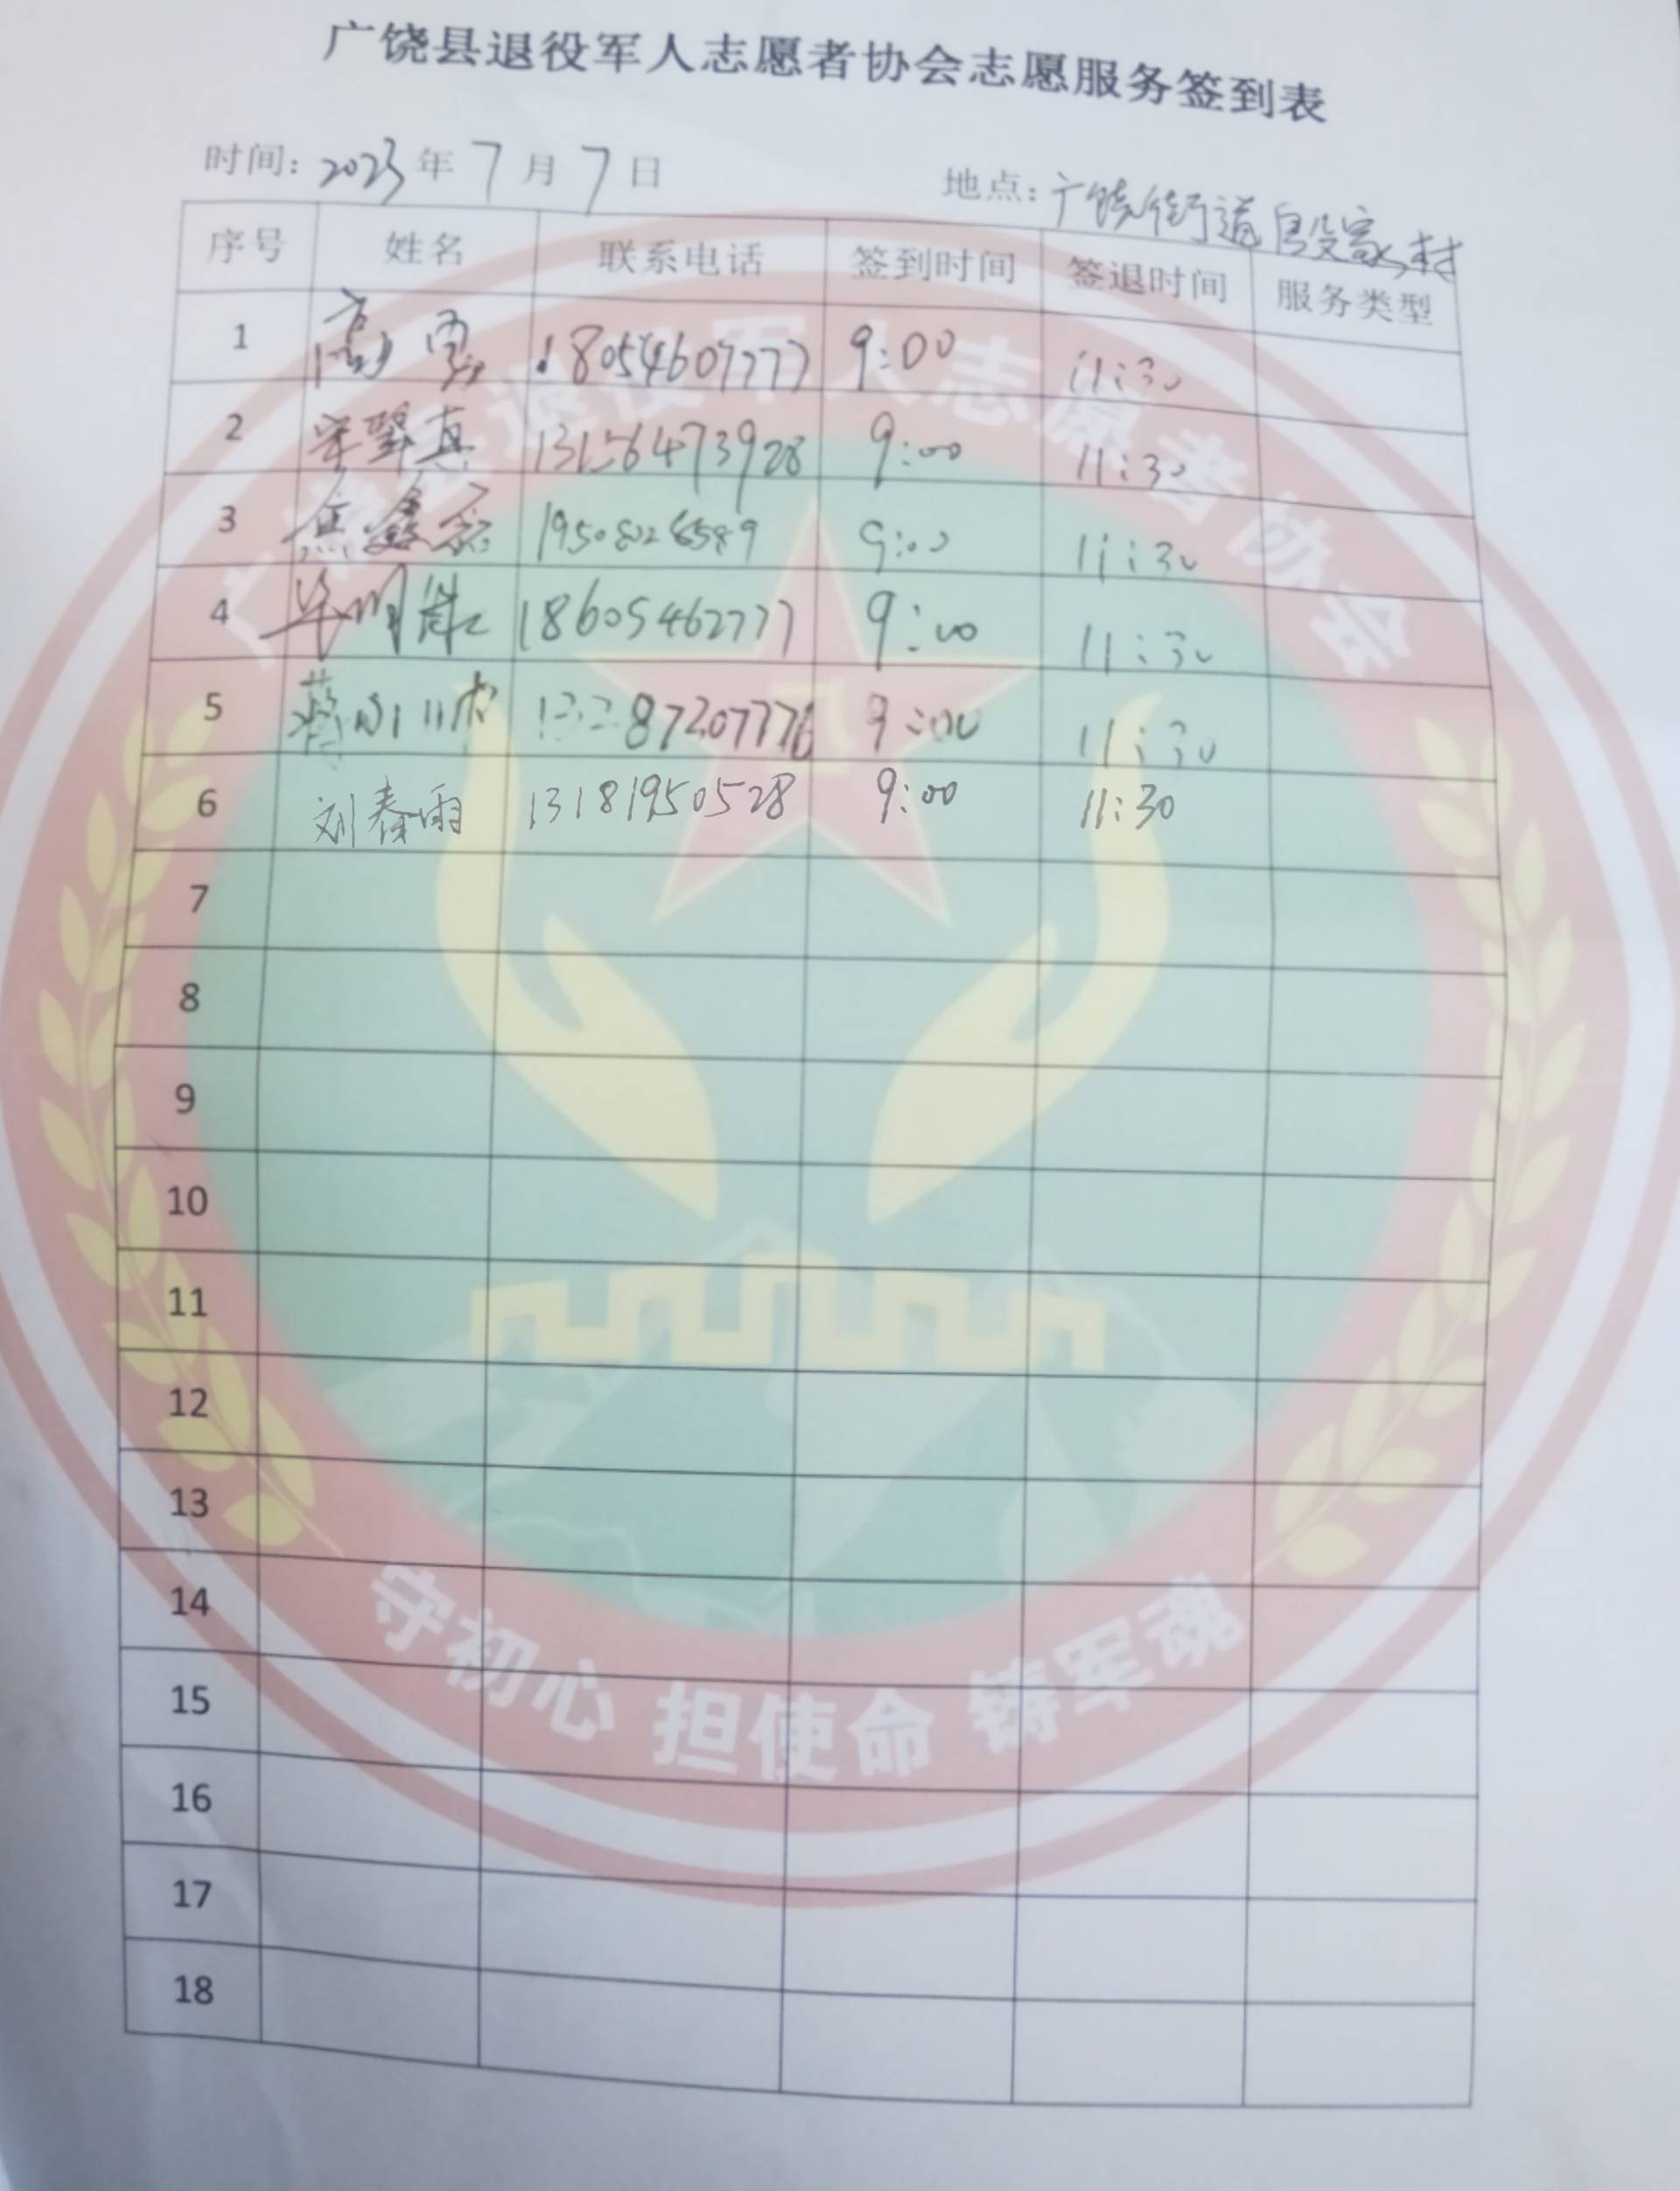 广饶县退役军人志愿者协会志愿服务签到表
时间: 2023 年 7 月 7 日 地点: 广饶街道段家村
序号 姓名 联系电话 签到时间 签退时间 服务类型
1 高勇 18054607777 9:00 11:30
2 13156473928 9:00 11:30
3 焦鑫 9:00 11:30
4 18605462777 9:00 11:30
5 9:00 11:30
6 刘春雨 13181950528 9:00 11:30
7
8
9
10
11
12
13
14
15
16
17
18
广饶县退役军人志愿者协会
守初心 担使命 铸军魂